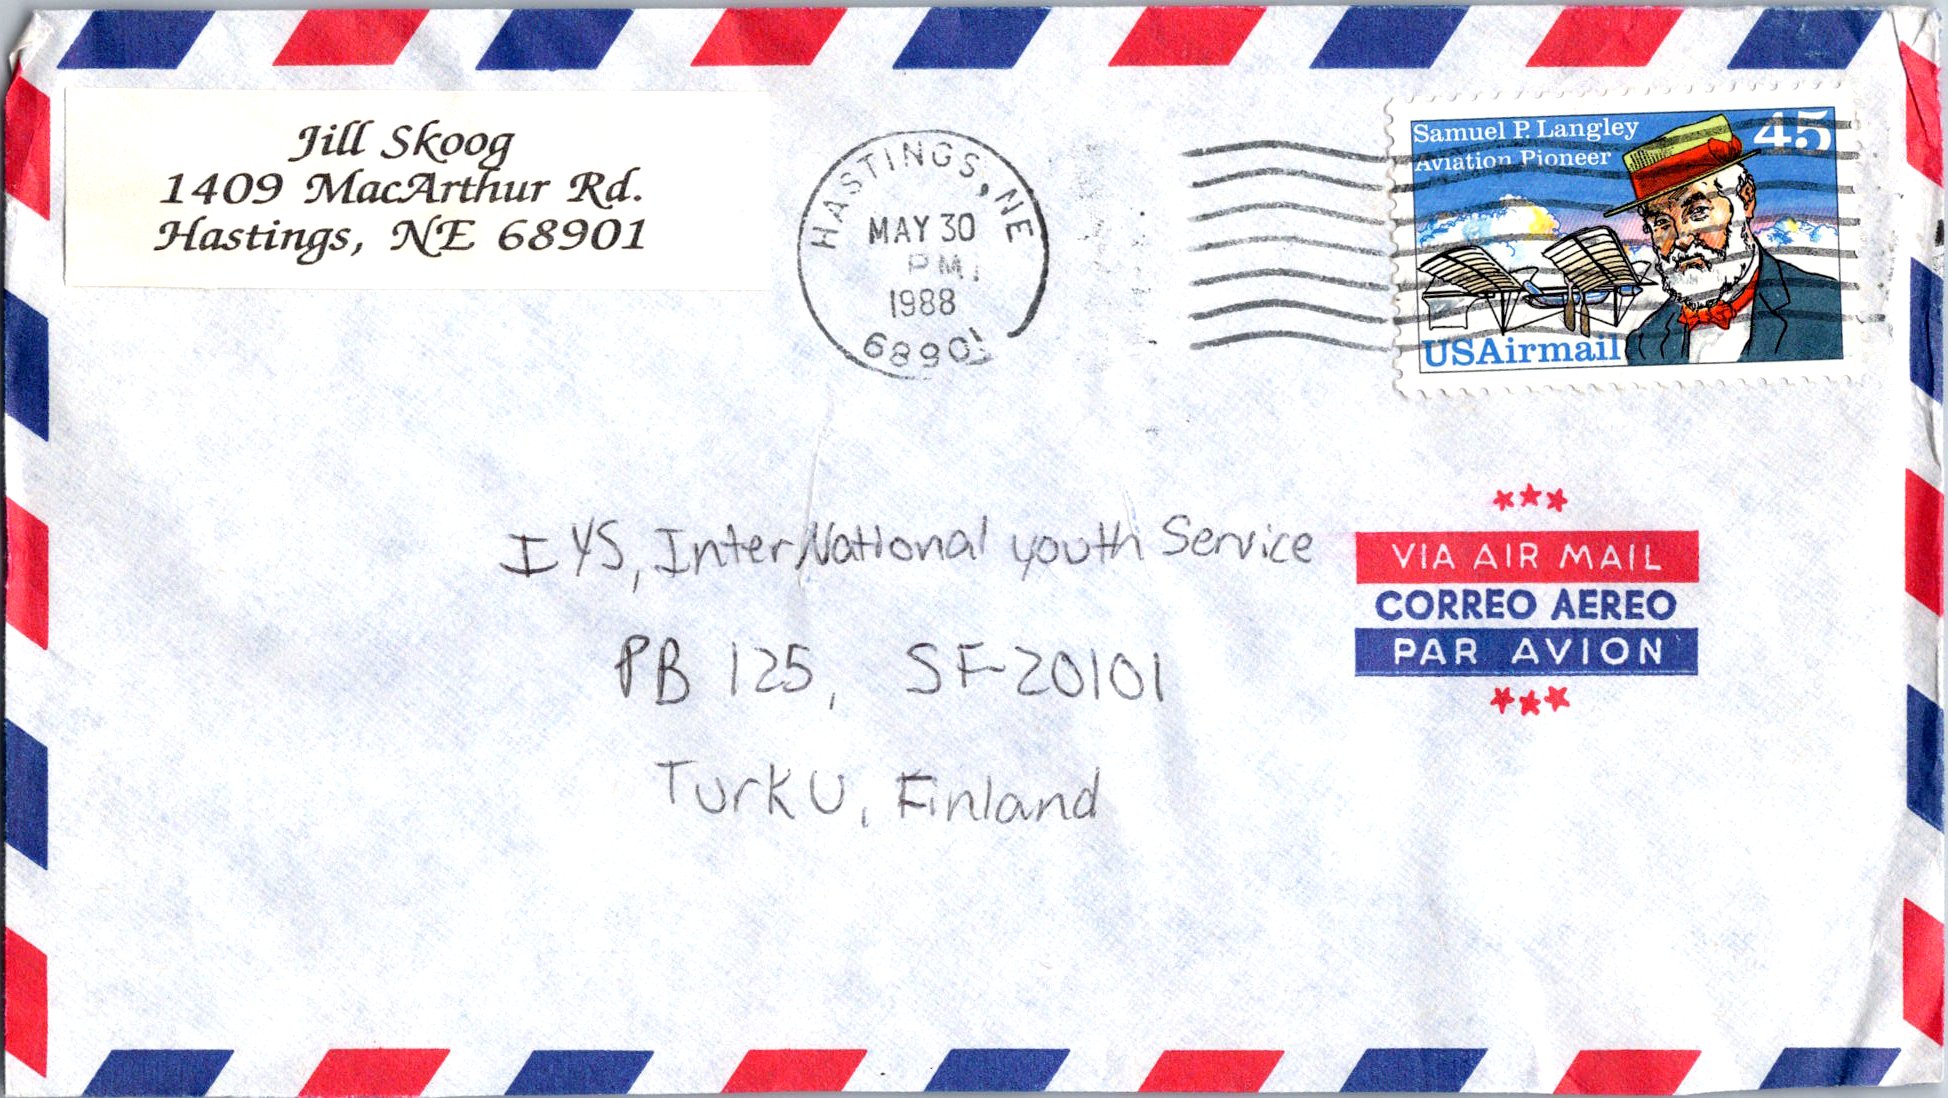 Jill Skoog
1409 MacArthur Rd.
Hastings, NE 68901
HASTINGS, NE
MAY 30
PM
1988
68901
Samuel P. Langley
Aviation Pioneer
45
USAirmail
IYS, InterNational youth Service
PB 125, SF-20101
Turku, Finland
VIA AIR MAIL
CORREO AEREO
PAR AVION